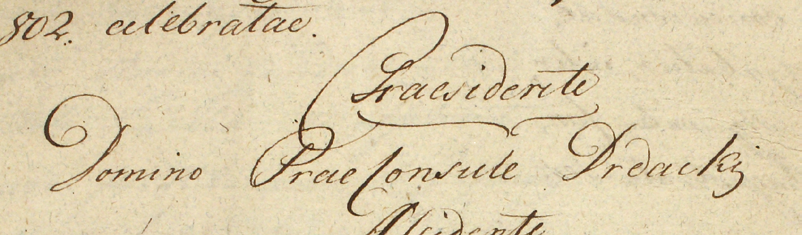 802. celebratae.
Praesidente
Domino PraeConsule Drdackj
Assidente